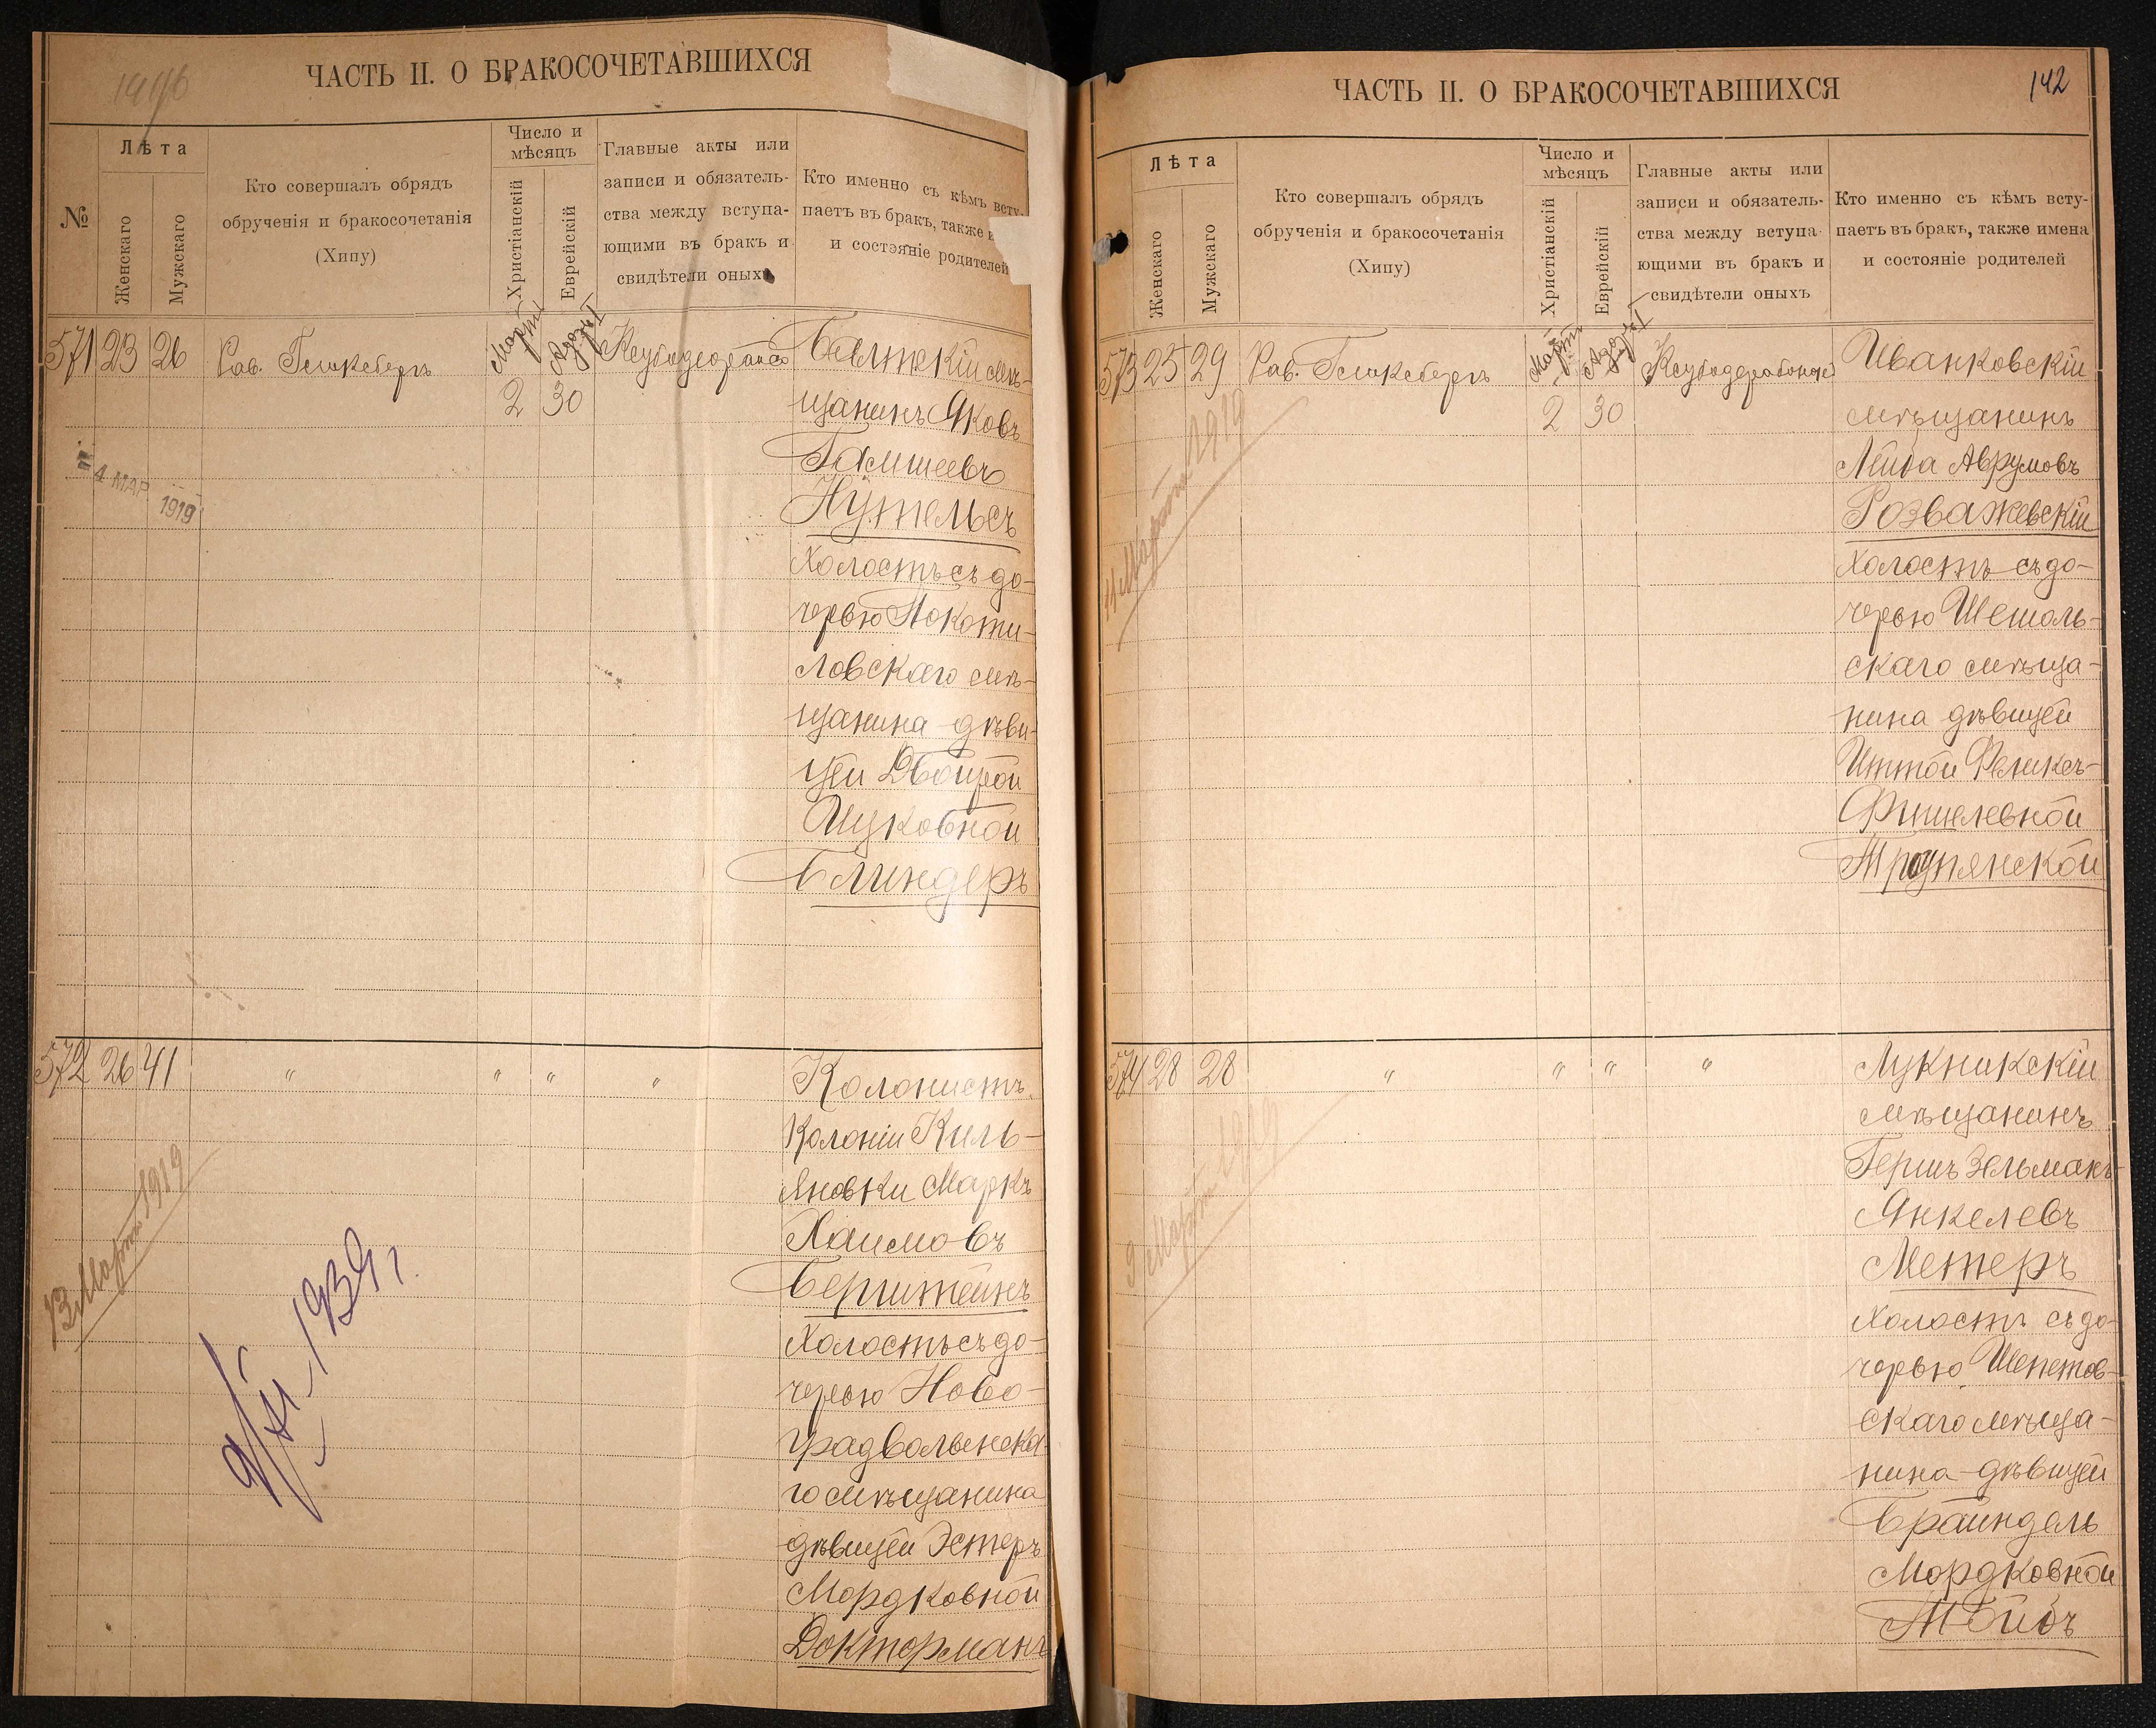 ЧАСТЬ II. О БРАКОСОЧЕТАВШИХСЯ
№
Лѣта
Женскаго
Мужскаго
Кто совершалъ обрядъ
обрученія и бракосочетанія
(Хипу)
Число и
мѣсяцъ
Христіанскій
Еврейскій
Главные акты или
записи и обязатель-
ства между вступа-
ющими въ бракъ и
свидѣтели оныхъ
Кто именно съ кѣмъ всту-
паетъ въ бракъ, также
и состояніе родителей
571 23 26 Рав.
Мартъ
2 30
Бѣлтскій мѣ-
щанинъ Яковъ
Гамшеевъ
Нутельсъ
холостъ съ до-
черью Покоти-
ловскаго мѣ-
щанина дѣви-
цей Двойрой
Ицковной
Блиндеръ
4 МАР 1919
572 26 41 " " " "
Колонистъ
колоніи Киль-
яновки Маркъ
Хаимовъ
Бернштейнъ
холостъ съ до-
черью Ново-
градволынска-
го мѣщанина
дѣвицей Эстеръ
Мордковной
Докторманъ
13 Марта 1919
1939 г.
ЧАСТЬ II. О БРАКОСОЧЕТАВШИХСЯ
142
Лѣта
Женскаго
Мужскаго
Кто совершалъ обрядъ
обрученія и бракосочетанія
(Хипу)
Число и
мѣсяцъ
Христіанскій
Еврейскій
Главные акты или
записи и обязатель-
ства между вступа-
ющими въ бракъ и
свидѣтели оныхъ
Кто именно съ кѣмъ всту-
паетъ въ бракъ, также имена
и состояніе родителей
573 25 29 Рав.
Мартъ
2 30
Иванковскій
мѣщанинъ
Лейба Аврумовъ
Розважевскій
холостъ съ до-
черью
скаго мѣща-
нина дѣвицей
Иттой
Фишелевной
14 Марта 1919
574 28 28 " " " "
Лукникскій
мѣщанинъ
Гершъ Зельманъ
Янкелевъ
Метеръ
холостъ съ до-
черью Шепетов-
скаго мѣща-
нина дѣвицей
Брайндель
Мордковной
9 Марта 1919